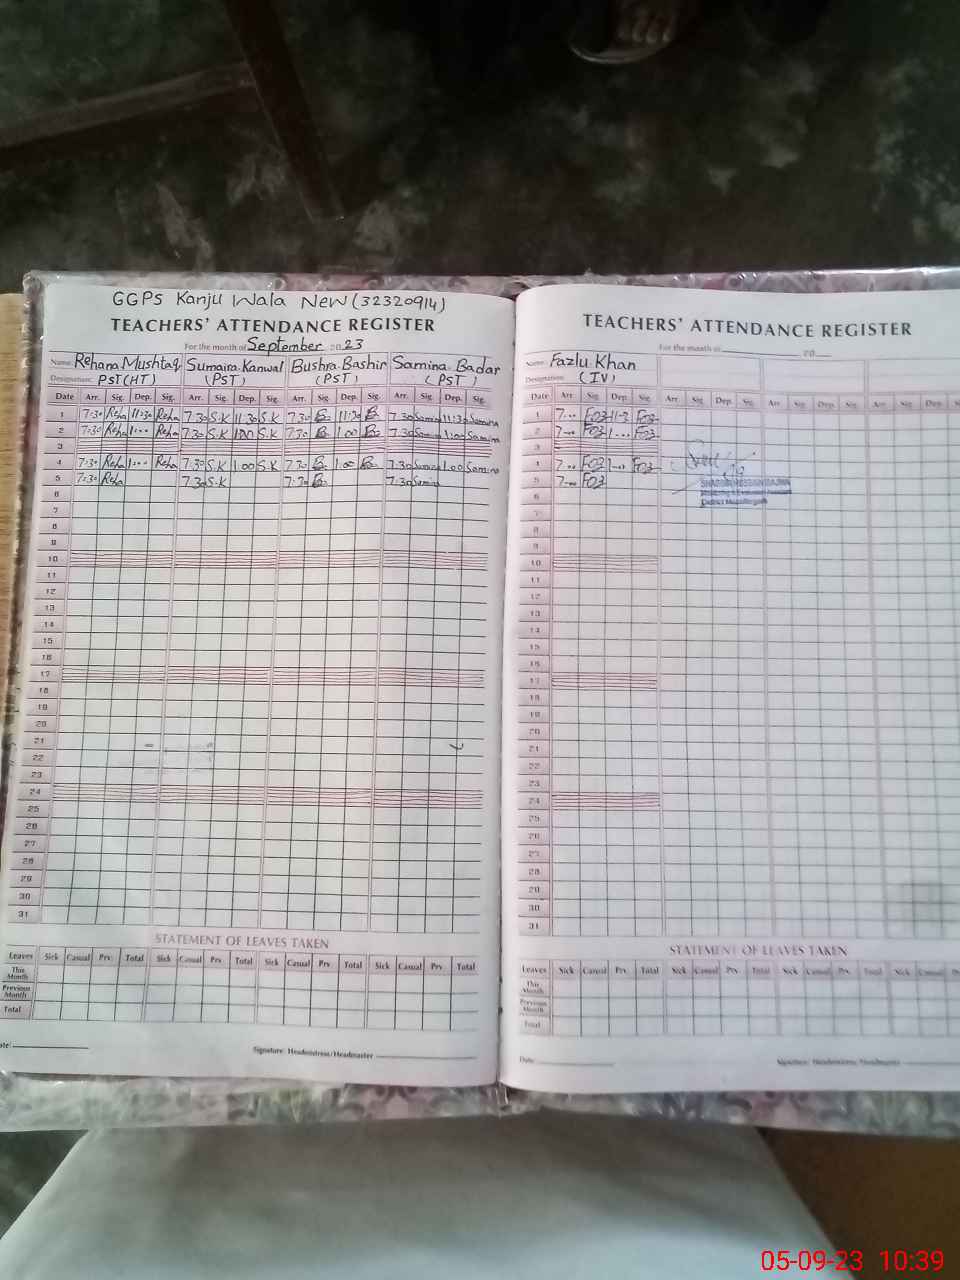 GGPS Kanju Wala New (32320914)
TEACHERS' ATTENDANCE REGISTER
For the month of September 2023
Name: Rehana Mushtaq Sumaira Kanwal Bushra Bashir Samina Badar
Designation: PST(HT) (PST) (PST) (PST)
Date Arr. Sig. Dep. Sig. Arr. Sig. Dep. Sig. Arr. Sig. Dep. Sig. Arr. Sig. Dep. Sig.
1 7:30 Reha 11:30 Reha 7.30 S.K 11.30 S.K 7.30 B 11:30 B 7.30 Samina 11:30 Samina
2 7:30 Reha 1:00 Reha 7.30 S.K 1.00 S.K 7.30 B 1.00 B 7.30 Samina 1:00 Samina
3
4 7:30 Reha 1:00 Reha 7:30 S.K 1.00 S.K 7.30 B 1.00 B 7.30 Samina 1.00 Samina
5 7:30 Reha 7.30 S.K 7:30 B 7.30 Samina
6
7
8
9
10
11
12
13
14
15
16
17
18
19
20
21
22
23
24
25
26
27
28
29
30
31
STATEMENT OF LEAVES TAKEN
Leaves Sick Casual Prv. Total Sick Casual Prv. Total Sick Casual Prv. Total Sick Casual Prv. Total
This Month
Previous Month
Total
Date: Signature: Headmistress/Headmaster
TEACHERS' ATTENDANCE REGISTER
For the month of 20
Name: Fazlu Khan
Designation: (IV)
Date Arr. Sig. Dep. Sig. Arr. Sig. Dep. Sig. Arr. Sig. Dep. Sig. Arr. Sig. Dep.
1
2
3
4
5
6
7
8
9
10
11
12
13
14
15
16
17
18
19
20
21
22
23
24
25
26
27
28
29
30
31
STATEMENT OF LEAVES TAKEN
Leaves Sick Casual Prv. Total Sick Casual Prv. Total Sick Casual Prv. Total Sick Casual
This Month
Previous Month
Total
Date: Signature: Headmistress/Headmaster
05-09-23 10:39